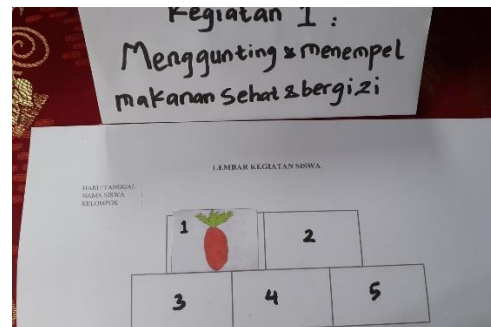 Kegiatan 1 :
Menggunting & menempel
makanan Sehat & bergizi
LEMBAR KEGIATAN SISWA
HARI / TANGGAL :
NAMA SISWA :
KELOMPOK :
1
2
3
4
5